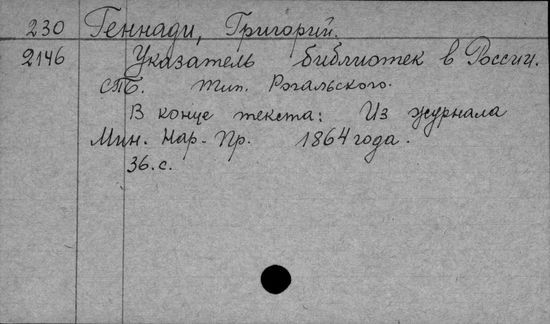 230 Геннади, Григорий.
2146 Указатель библиотек в России.
СПБ. тип. Рогальского.
В конце текста: Из журнала
Мин. Нар. Пр. 1864 года.
36.с.